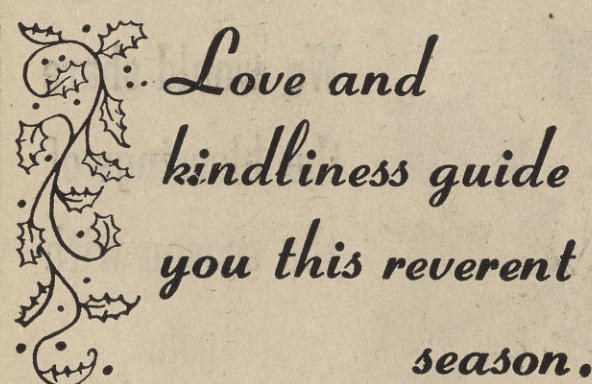 Love and
kindliness guide
you this reverent
season.